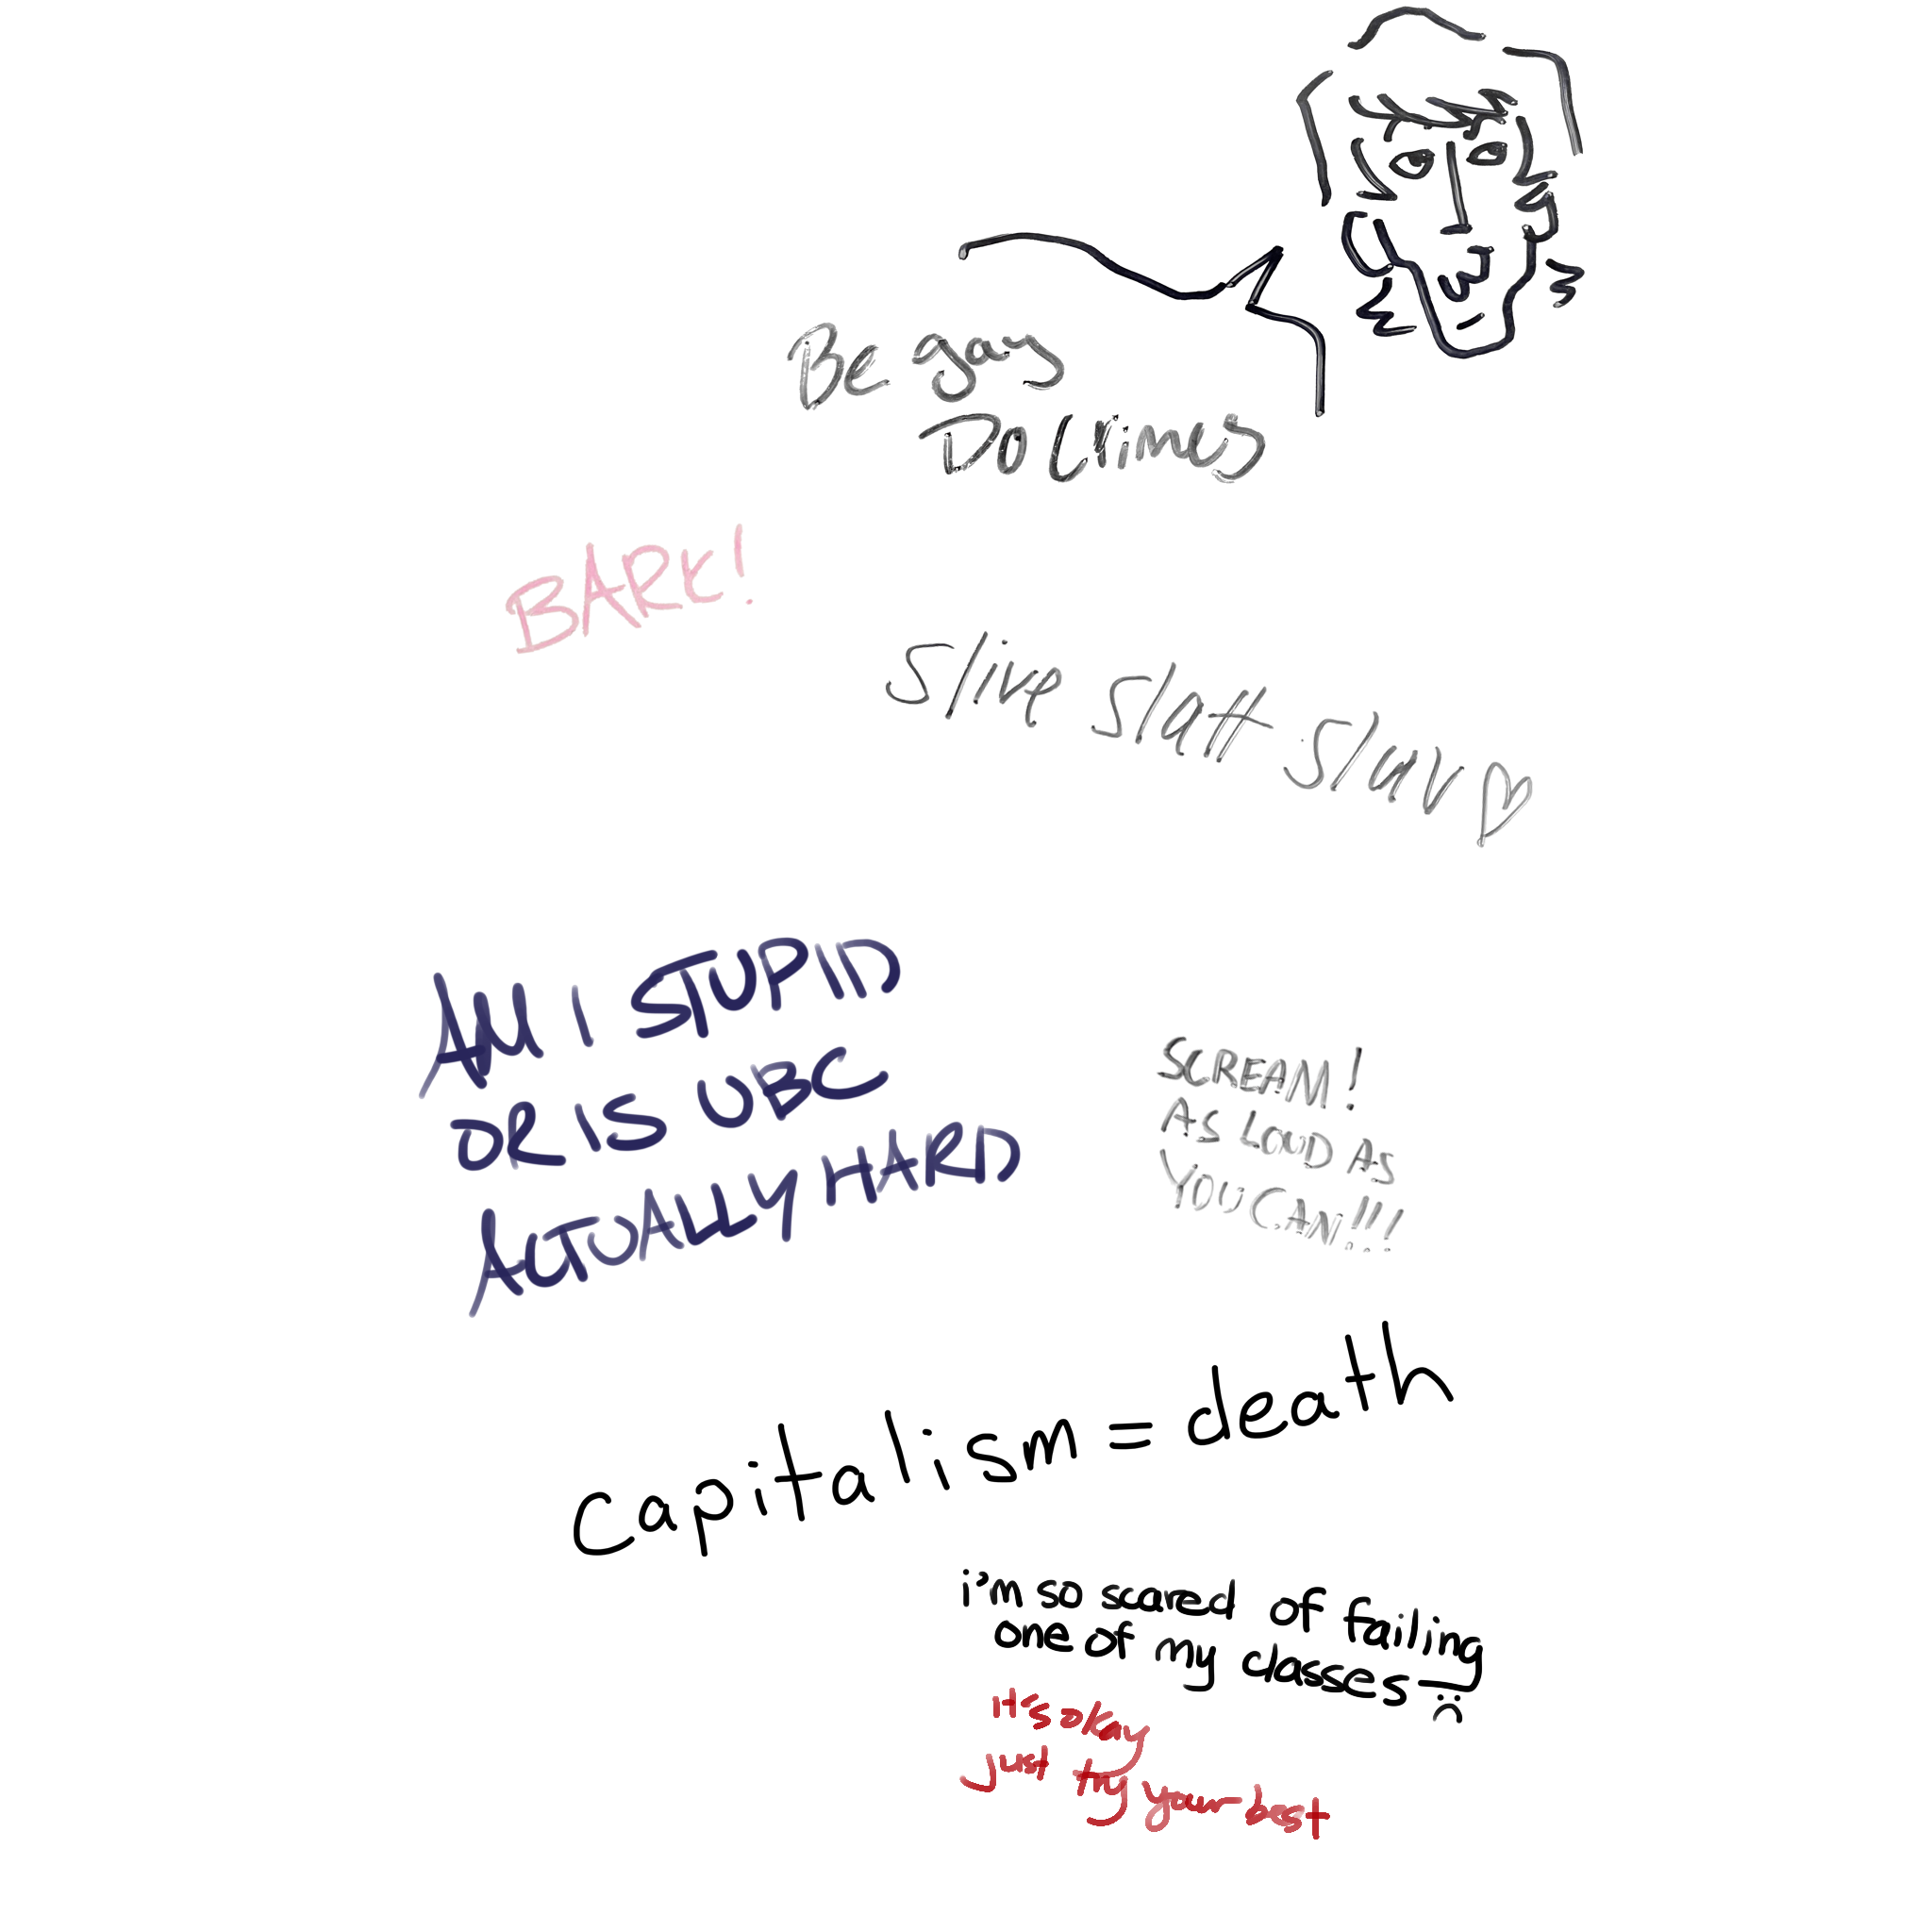 Be gay
Do Crimes
BARK!
Slive Slatt
AM I STUPID
OR IS UBC
ACTUALLY HARD
SCREAM!
AS LOUD AS
YOU CAN!!!
Capitalism = death
i'm so scared of failing
one of my classes :(
it's okay
just try your best